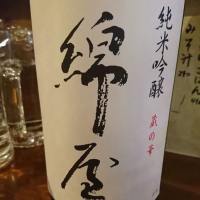 純米吟醸
蔵の華
綿屋